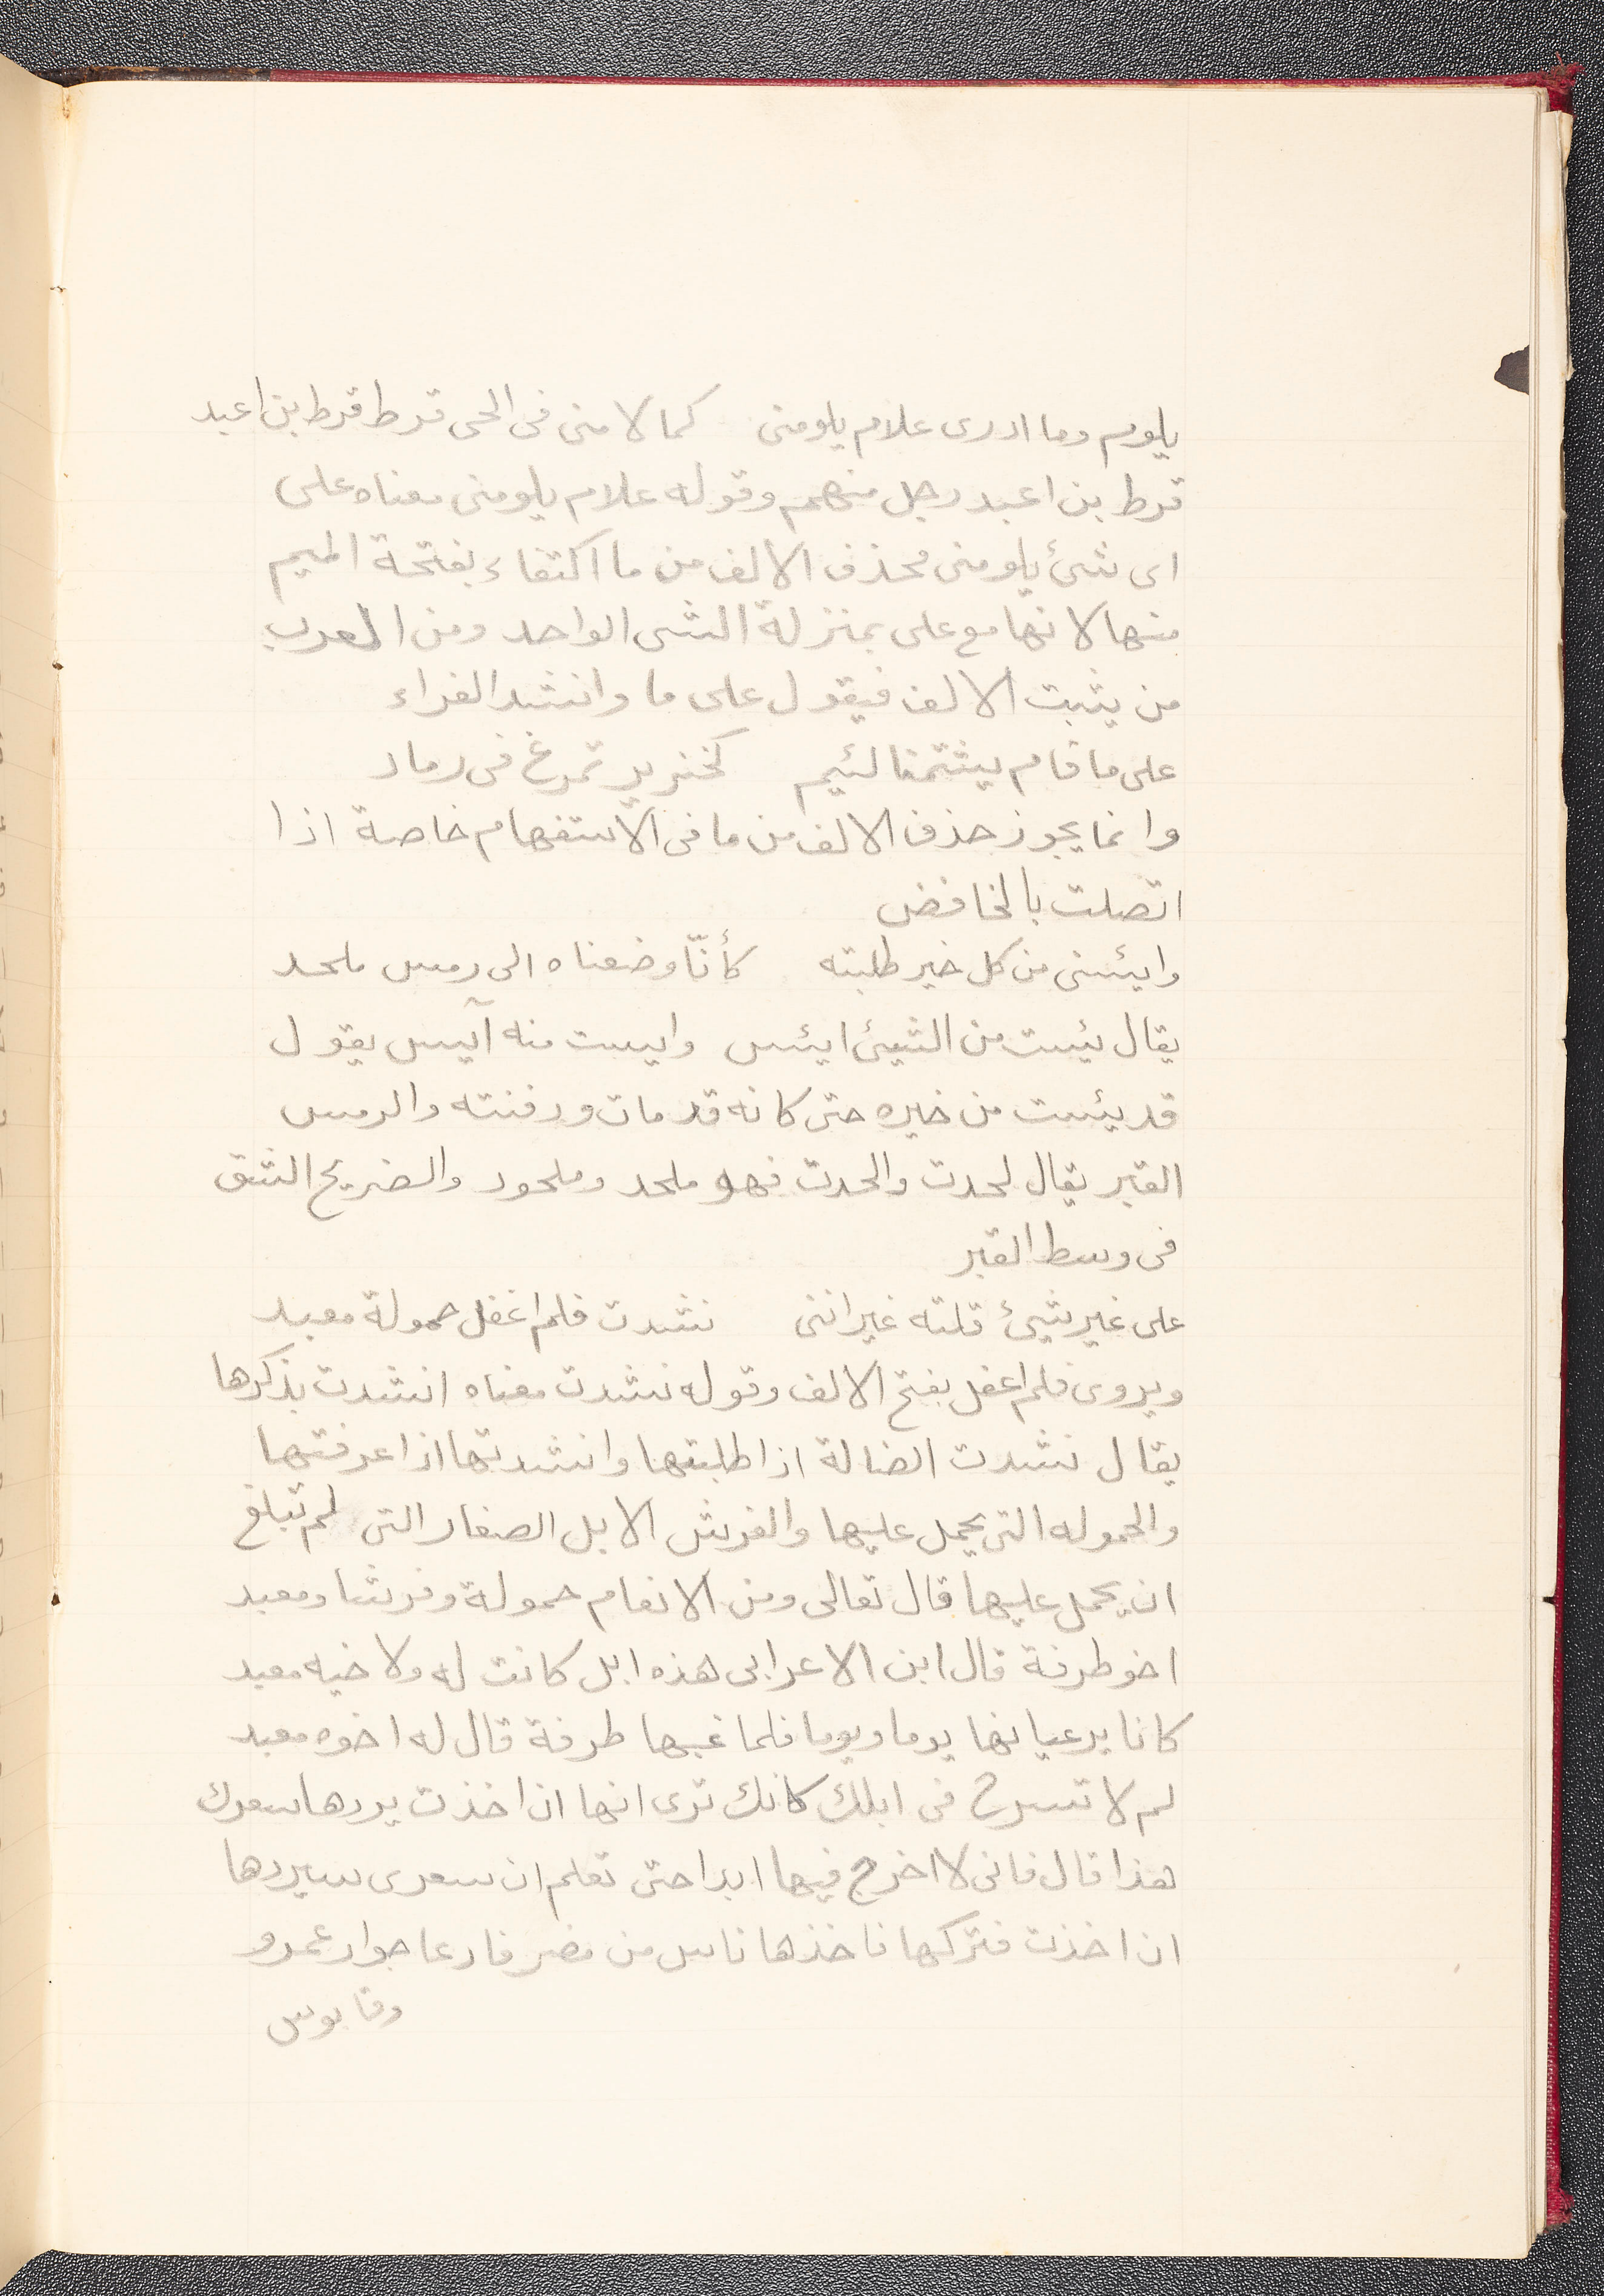 يلوم وما ادرى علام يلومنى كما لامنى فى الحى قرط قرط بن اعبد
قرط بن اعبد رجل منهم وقوله علام يلومنى معناه على
اى شئ يلومنى محذف الالف من ما اكتفاء بفتحة الميم
منها لانها مع على بمنزلة الشى الواحد ومن العرب
من يثبت الالف فيقول على ما وانشد الفراء
على ما قام يشتمنا لئيم كخنزير تمرغ فى رماد
وانما يجوز حذف الالف من ما فى الاستفهام خاصة اذا
اتصلت بالخافض
وايئسنى من كل خير طلبته كأنّا وضعناه الى رمس ملحد
يقال يئست من الشيئ ايئس وايست منه آيس يقول
قد يئست من خيره حتى كانه قد مات ودفنته والرمس
القبر يقال لحدت والحدت فهو ملحد وملحود والضريح الشق
فى وسط القبر
على غير شيئ قلته غير اننى نشدت فلم اغفل حمولة معبد
ويروى فلم اغفل بفتح الالف وقوله نشدت معناه انشدت بذكرها
يقال نشدت الضالة اذا طلبتها وانشدتها اذا عرفتها
والحموله التى يحمل عليها والفرش الابل الصغار التى لم تبلغ
ان يحمل عليها قال تعالى ومن الانعام حمولة وفرشا ومعبد
اخو طرفة قال ابن الاعرابى هذه ابل كانت له ولاخيه معبد
كانا يرعيانها يوما ويوما فلما غبها طرفة قال له اخوه معبد
لم لا تسرح فى ابلك كانك ترى انها ان اخذت يردها سعرك
هذا قال فانى لا اخرج فيها ابدا حتى تعلم ان سعرى سيردها
ان اخذت فتركها فاخذها ناس من مضر فادعا جوار عمرو
وقابوس